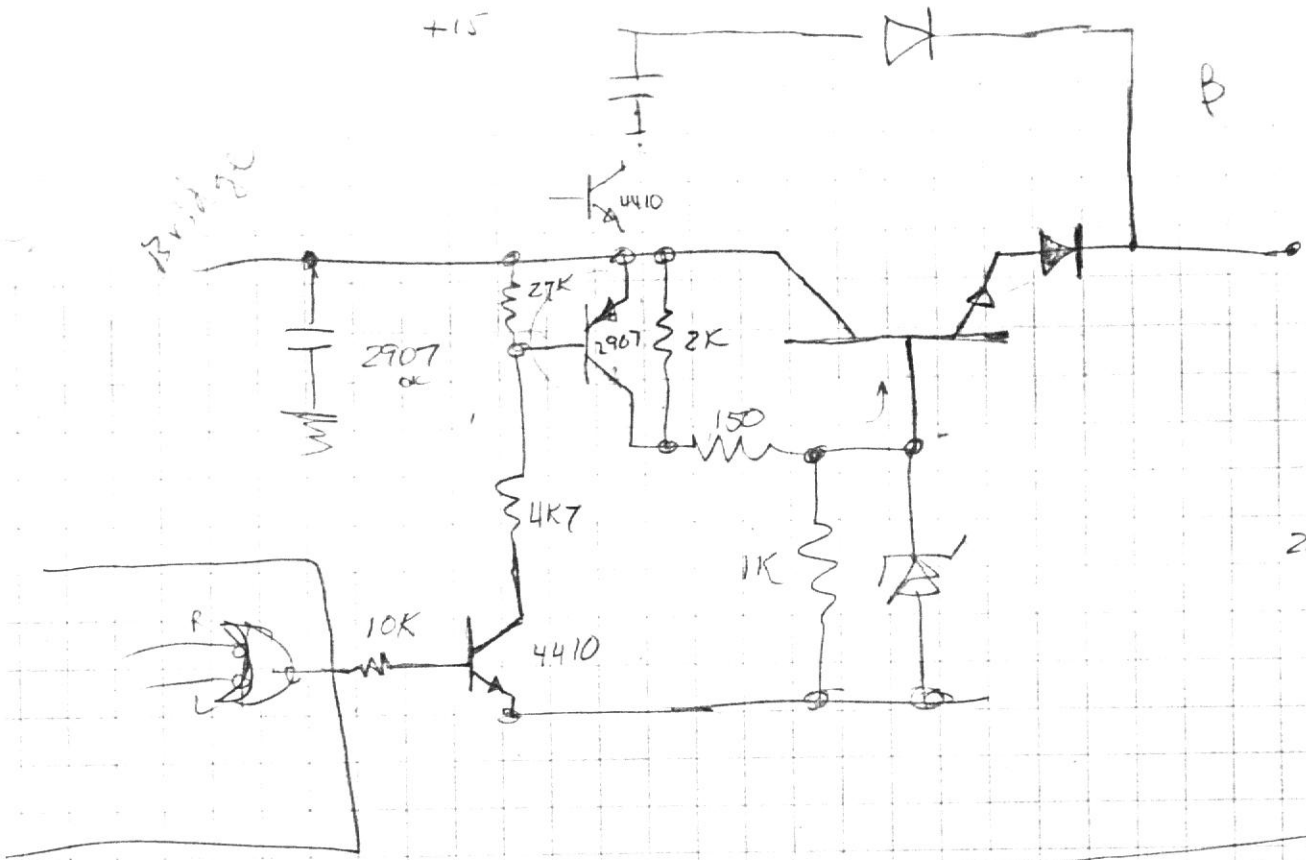 +15
B
Bridge
4410
27K
2907
2K
2907
OK
150
4K7
1K
2
R
10K
4410
L